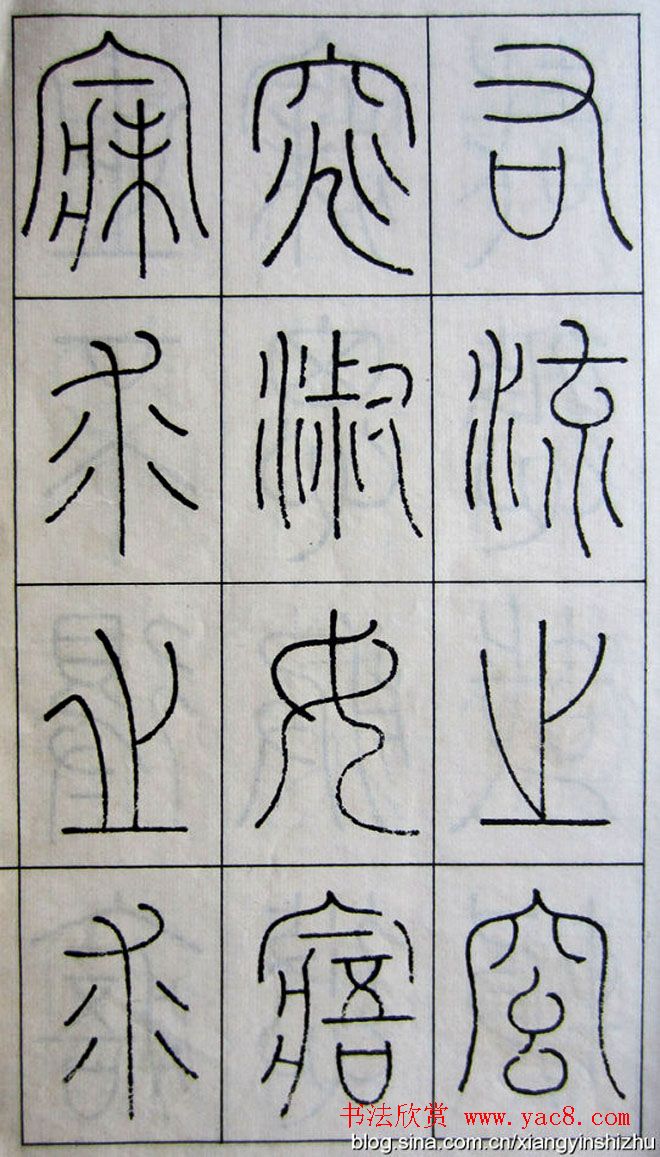 右流之窈
窕淑女寤
寐求之求
书法欣赏 www.yac8.com
blog.sina.com.cn/xiangyinshizhu